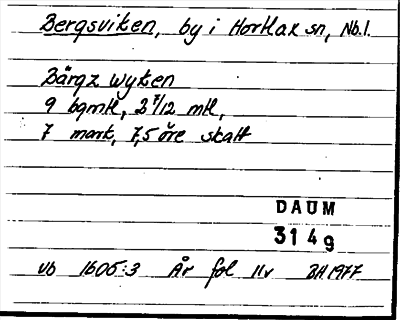 Bergsviken, by i Hortlax sn, Nb.l.
Bärgz wyken
9 bgmtl, 2 7/12 mtl,
7 mark, 7,5 öre skatt
DAUM
3149
Vb 1605:3 År fol 11v BH.1977